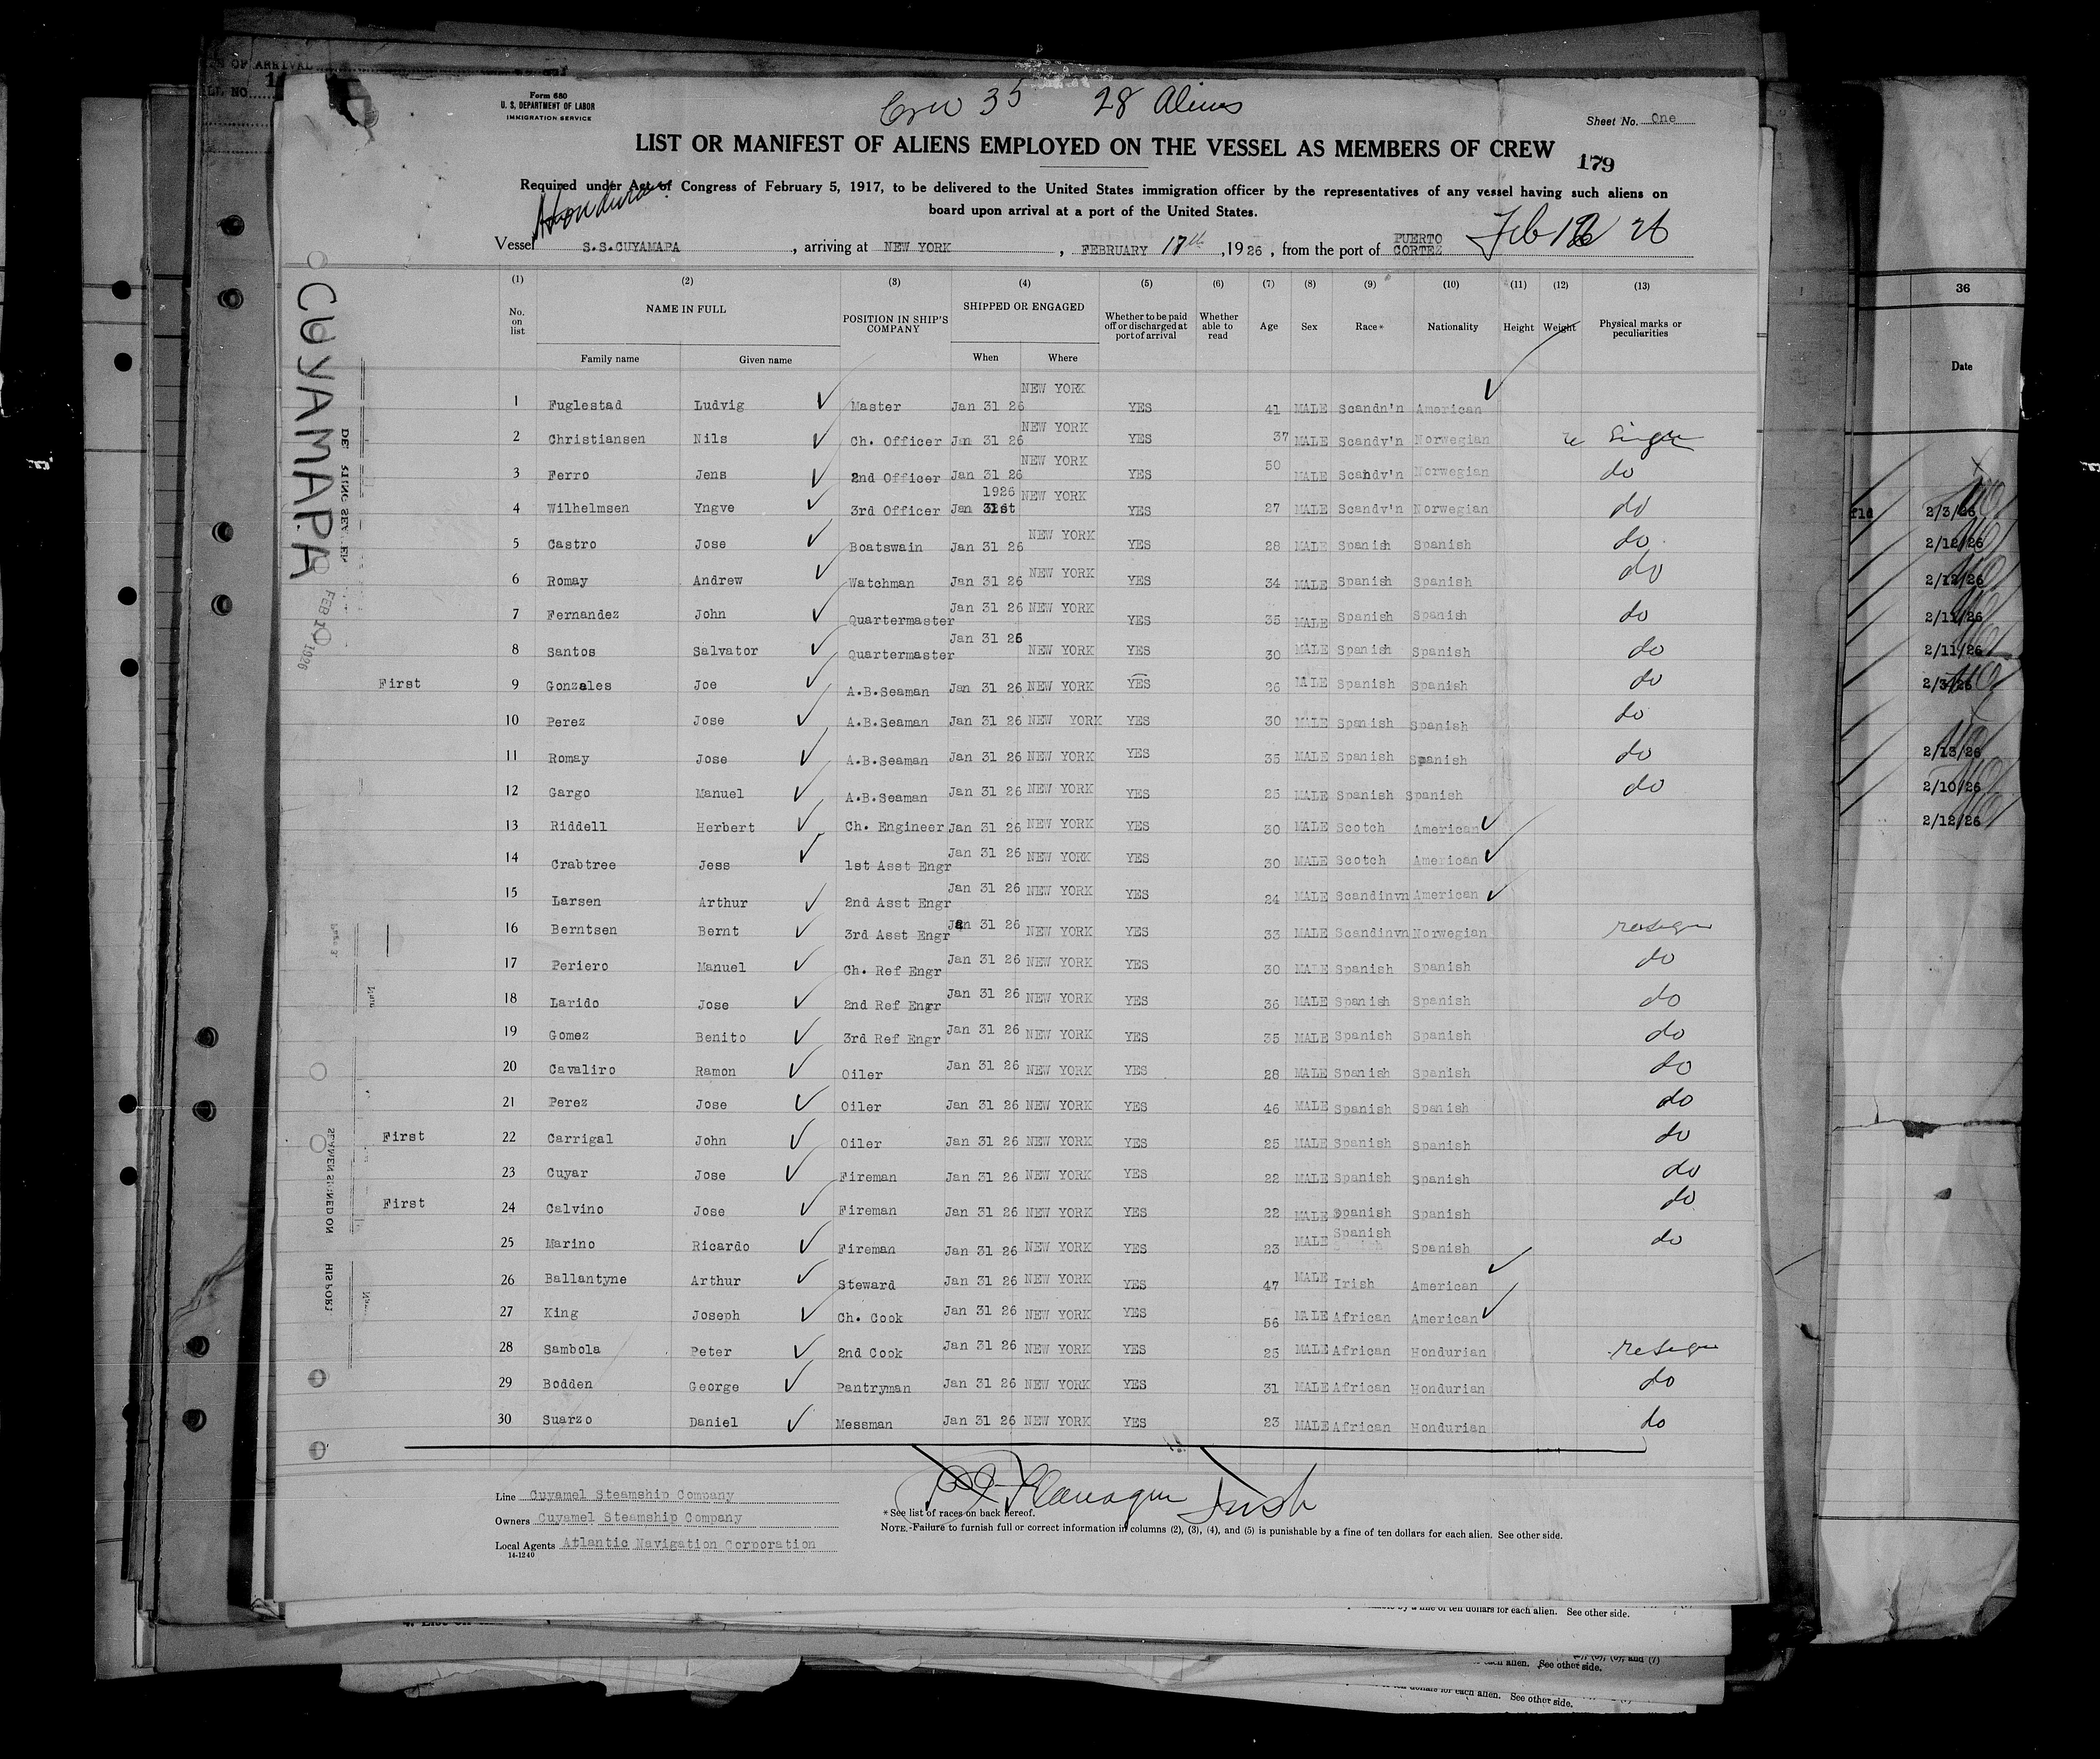 Form 680
U. S. DEPARTMENT OF LABOR
IMMIGRATION SERVICE
Crew 35 28 Aliens
Sheet No. One
LIST OR MANIFEST OF ALIENS EMPLOYED ON THE VESSEL AS MEMBERS OF CREW
179
Required under Act of Congress of February 5, 1917, to be delivered to the United States immigration officer by the representatives of any vessel having such aliens on
board upon arrival at a port of the United States.
Honduras
Vessel S.S.CUYAMAPA, arriving at NEW YORK, FEBRUARY 17th, 1926, from the port of PUERTO CORTEZ
(1) (2) (3) (4) (5) (6) (7) (8) (9) (10) (11) (12) (13)
No. on list NAME IN FULL POSITION IN SHIP'S COMPANY SHIPPED OR ENGAGED Whether to be paid off or discharged at port of arrival Whether able to read Age Sex Race* Nationality Height Weight Physical marks or peculiarities
Family name Given name When Where
1 Fuglestad Ludvig Master Jan 31 26 NEW YORK YES 41 MALE Scandn'n American
2 Christiansen Nils Ch. Officer Jan 31 26 NEW YORK YES 37 MALE Scandv'n Norwegian
3 Ferro Jens 2nd Officer Jan 31 26 NEW YORK YES 50 MALE Scandv'n Norwegian do
4 Wilhelmsen Yngve 3rd Officer Jan 31st 1926 NEW YORK YES 27 MALE Scandv'n Norwegian do
5 Castro Jose Boatswain Jan 31 26 NEW YORK YES 28 MALE Spanish Spanish do
6 Romay Andrew Watchman Jan 31 26 NEW YORK YES 34 MALE Spanish Spanish do
7 Fernandez John Quartermaster Jan 31 26 NEW YORK YES 35 MALE Spanish Spanish do
8 Santos Salvator Quartermaster Jan 31 26 NEW YORK YES 30 MALE Spanish Spanish do
First 9 Gonzales Joe A.B.Seaman Jan 31 26 NEW YORK YES 26 MALE Spanish Spanish do
10 Perez Jose A.B.Seaman Jan 31 26 NEW YORK YES 30 MALE Spanish Spanish do
11 Romay Jose A.B.Seaman Jan 31 26 NEW YORK YES 35 MALE Spanish Spanish do
12 Gargo Manuel A.B.Seaman Jan 31 26 NEW YORK YES 25 MALE Spanish Spanish do
13 Riddell Herbert Ch. Engineer Jan 31 26 NEW YORK YES 30 MALE Scotch American
14 Crabtree Jess 1st Asst Engr Jan 31 26 NEW YORK YES 30 MALE Scotch American
15 Larsen Arthur 2nd Asst Engr Jan 31 26 NEW YORK YES 24 MALE Scandinvn American
16 Berntsen Bernt 3rd Asst Engr Jan 31 26 NEW YORK YES 33 MALE Scandinvn Norwegian
17 Periero Manuel Ch. Ref Engr Jan 31 26 NEW YORK YES 30 MALE Spanish Spanish do
18 Larido Jose 2nd Ref Engr Jan 31 26 NEW YORK YES 36 MALE Spanish Spanish do
19 Gomez Benito 3rd Ref Engr Jan 31 26 NEW YORK YES 35 MALE Spanish Spanish do
20 Cavaliro Ramon Oiler Jan 31 26 NEW YORK YES 28 MALE Spanish Spanish do
21 Perez Jose Oiler Jan 31 26 NEW YORK YES 46 MALE Spanish Spanish do
First 22 Carrigal John Oiler Jan 31 26 NEW YORK YES 25 MALE Spanish Spanish do
23 Cuyar Jose Fireman Jan 31 26 NEW YORK YES 22 MALE Spanish Spanish do
First 24 Calvino Jose Fireman Jan 31 26 NEW YORK YES 22 MALE Spanish Spanish do
25 Marino Ricardo Fireman Jan 31 26 NEW YORK YES 23 MALE Spanish Spanish do
26 Ballantyne Arthur Steward Jan 31 26 NEW YORK YES 47 MALE Irish American
27 King Joseph Ch. Cook Jan 31 26 NEW YORK YES 56 MALE African American
28 Sambola Peter 2nd Cook Jan 31 26 NEW YORK YES 25 MALE African Hondurian
29 Bodden George Pantryman Jan 31 26 NEW YORK YES 31 MALE African Hondurian do
30 Suarzo Daniel Messman Jan 31 26 NEW YORK YES 23 MALE African Hondurian do
Line Cuyamel Steamship Company
Owners Cuyamel Steamship Company
Local Agents Atlantic Navigation Corporation
14-1240
*See list of races on back hereof.
NOTE.-Failure to furnish full or correct information in columns (2), (3), (4), and (5) is punishable by a fine of ten dollars for each alien. See other side.
CUYAMAPA
FEB 1926
OF ARRIVAL
36
Date
2/3/26
2/12/26
2/12/26
2/11/26
2/11/26
2/3/26
2/13/26
2/10/26
2/12/26
of ten dollars for each alien. See other side.
each alien. See other side.
ten dollars for each alien. See other side.